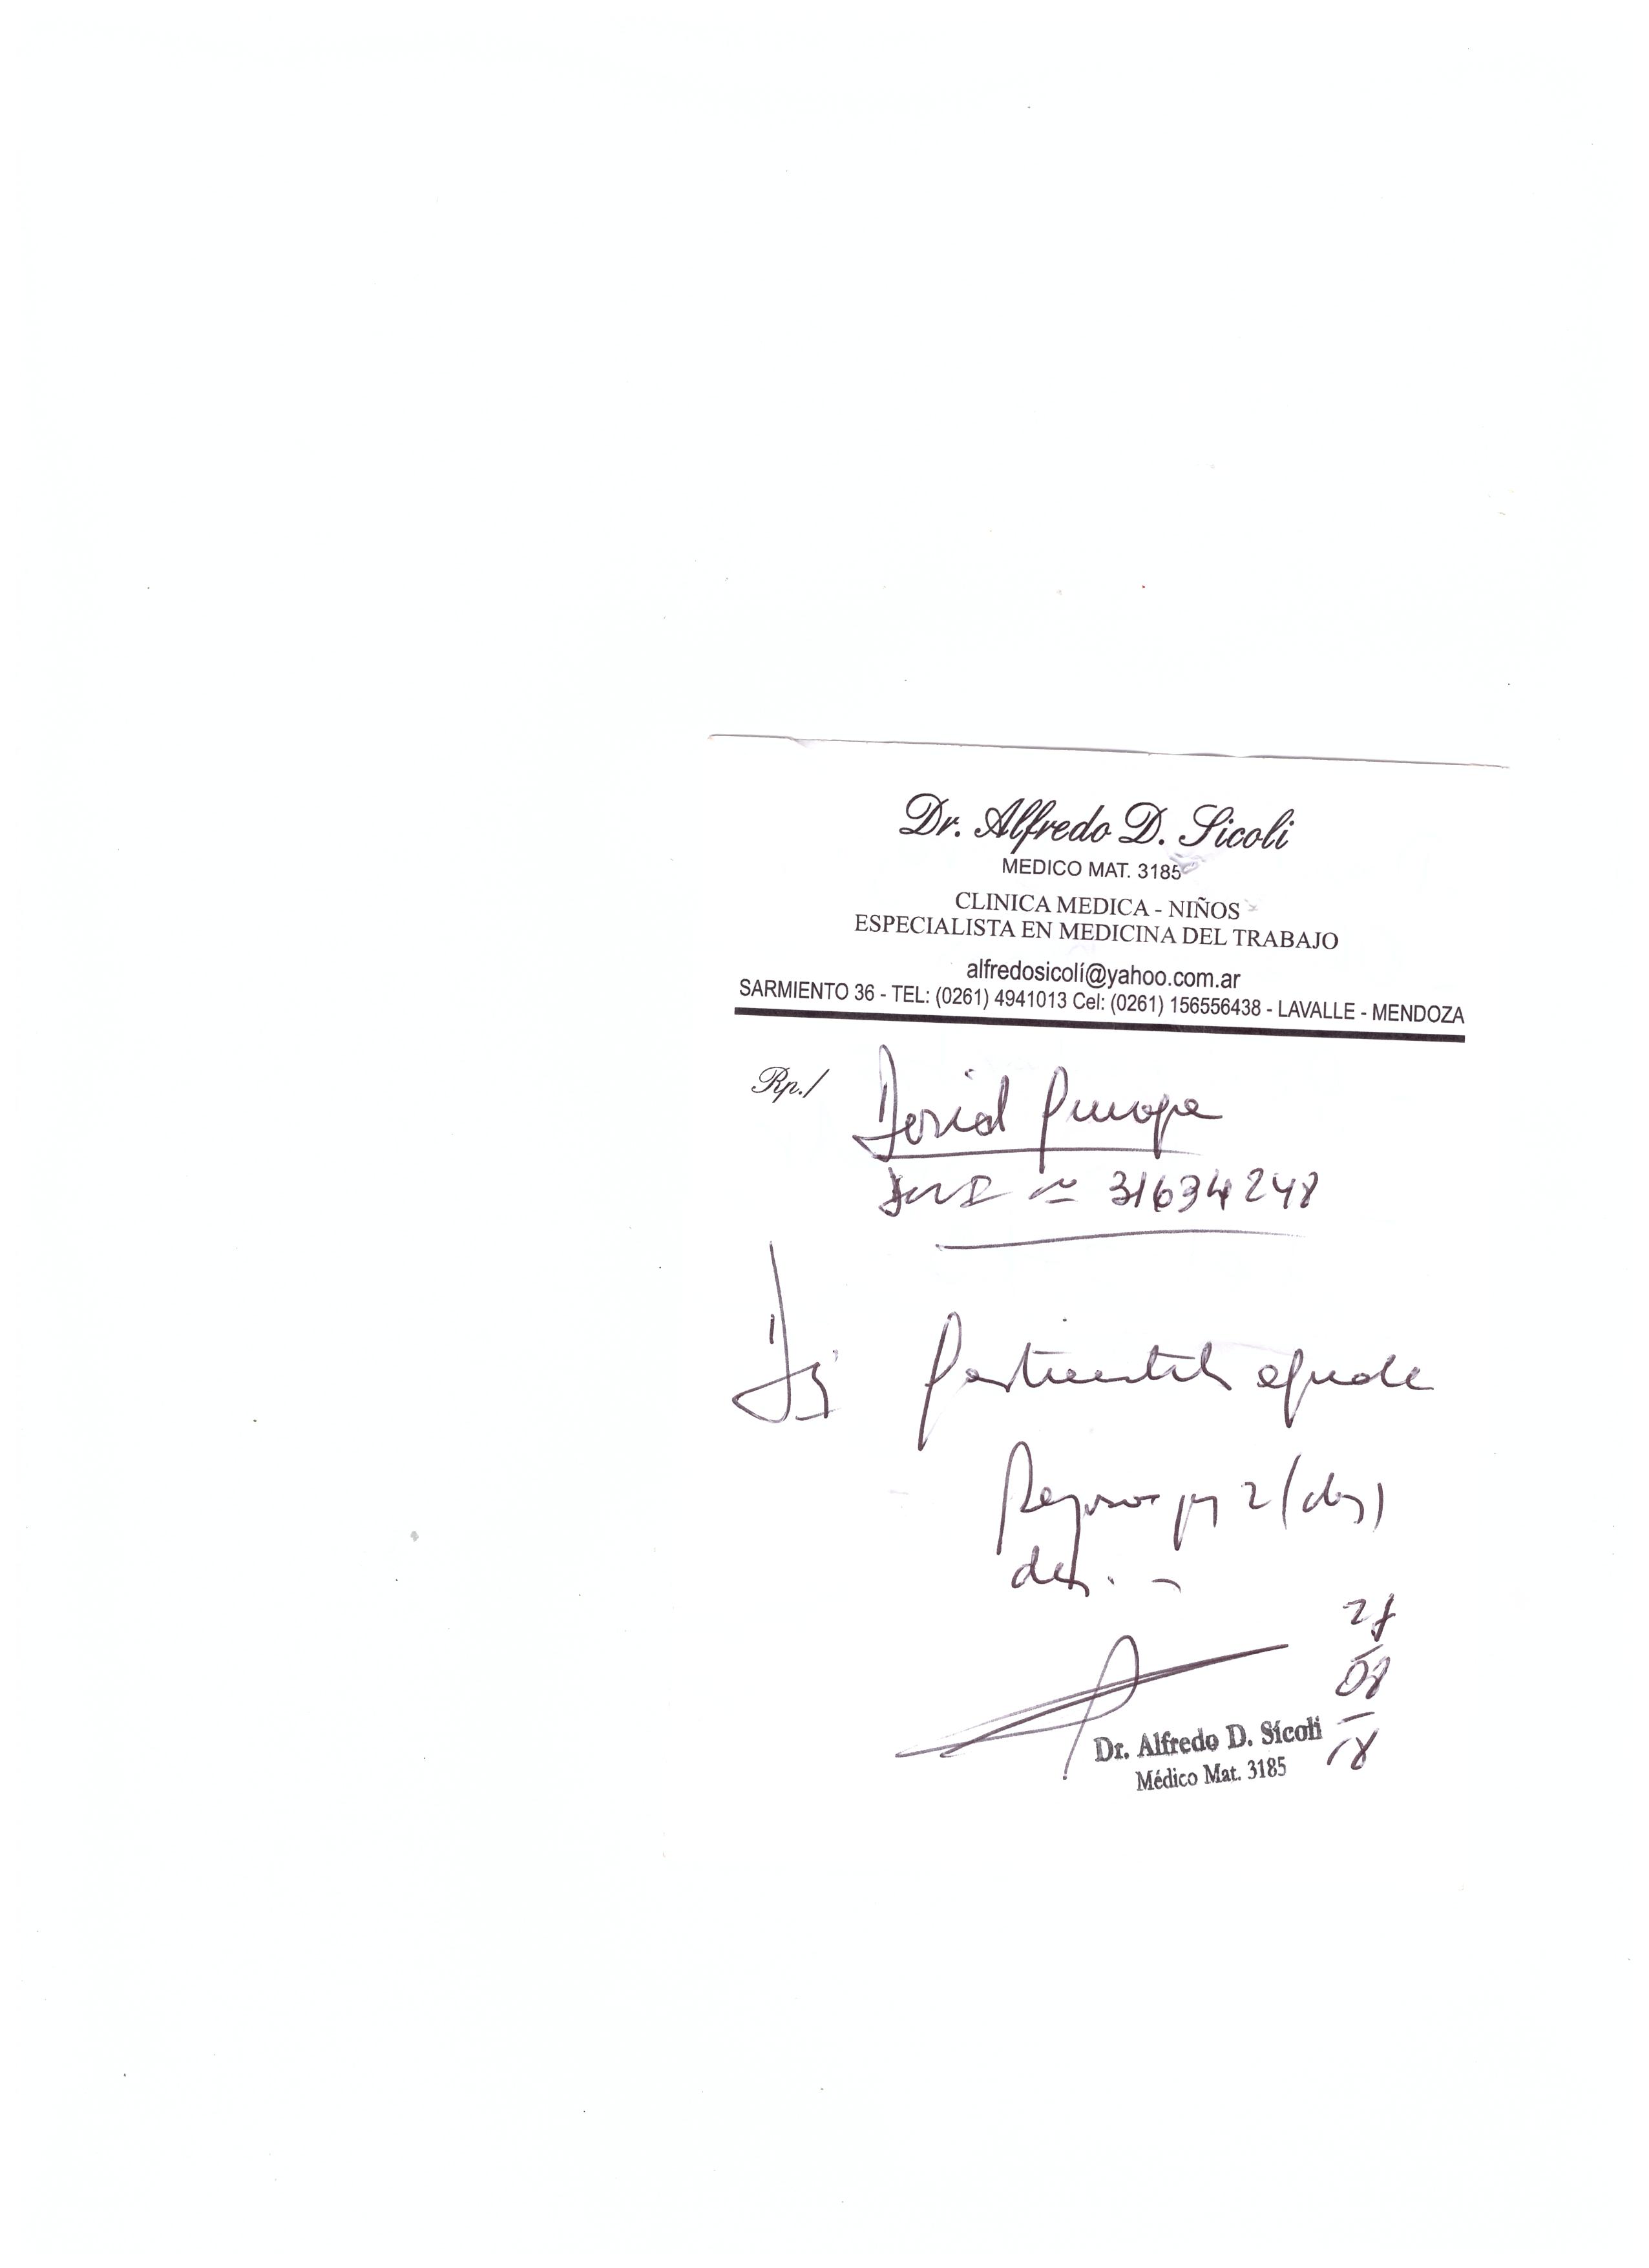 Dr. Alfredo D. Sicoli
MEDICO MAT. 3185
CLINICA MEDICA - NIÑOS
ESPECIALISTA EN MEDICINA DEL TRABAJO
alfredosicolí@yahoo.com.ar
SARMIENTO 36 - TEL: (0261) 4941013 Cel: (0261) 156556438 - LAVALLE - MENDOZA
Rp./ David
DNI Nº 31634248
Reposo por 2 (dos)
días.-
08
18
Dr. Alfredo D. Sícoli
Médico Mat. 3185